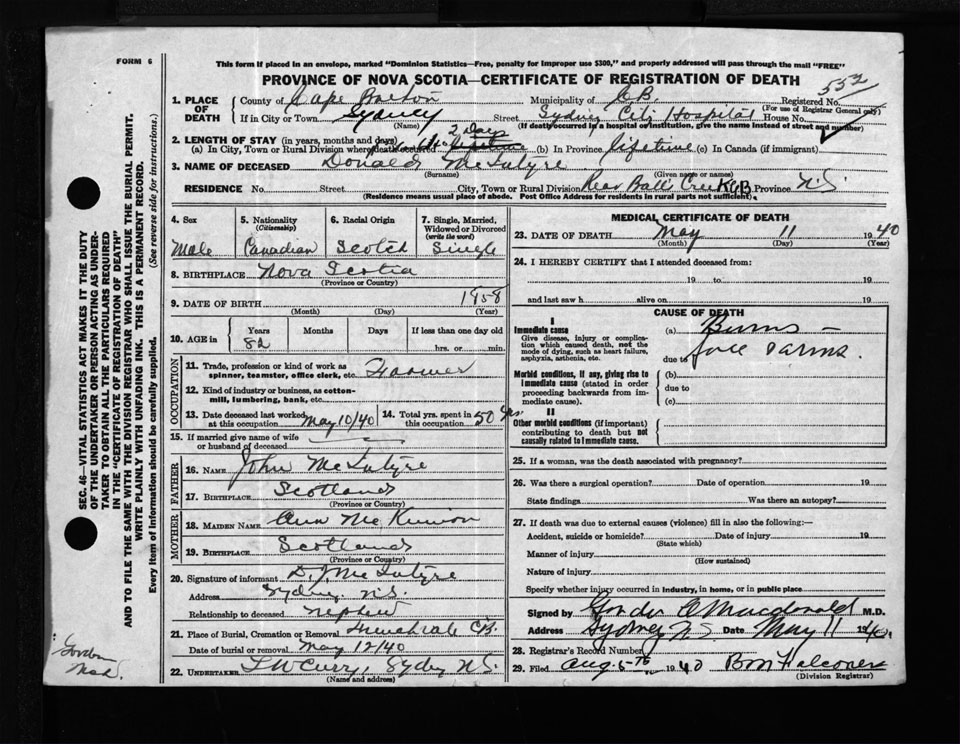 FORM 6
This form if placed in an envelope, marked "Dominion Statistics—Free, penalty for improper use $300," and properly addressed will pass through the mail "FREE"
PROVINCE OF NOVA SCOTIA—CERTIFICATE OF REGISTRATION OF DEATH
557
1. PLACE OF DEATH County of Cape Breton Municipality of C.B. Registered No.
(For use of Registrar General only)
If in City or Town Sydney Street Sydney City Hospital House No.
(Name) (If death occurred in a hospital or institution, give the name instead of street and number)
2. LENGTH OF STAY (in years, months and days) 2 Days
(a) In City, Town or Rural Division where death occurred (b) In Province lifetime (c) In Canada (if immigrant)
3. NAME OF DECEASED Donald McIntyre
(Surname) (Given name or names)
RESIDENCE No. Street City, Town or Rural Division Rear Balls Creek CB Province N.S.
(Residence means usual place of abode. Post Office Address for residents in rural parts not sufficient)
4. Sex Male
5. Nationality (Citizenship) Canadian
6. Racial Origin Scotch
7. Single, Married, Widowed or Divorced (write the word) Single
8. BIRTHPLACE Nova Scotia
(Province or Country)
9. DATE OF BIRTH 1958
(Month) (Day) (Year)
10. AGE in Years Months Days If less than one day old
82 hrs. or min.
OCCUPATION
11. Trade, profession or kind of work as spinner, teamster, office clerk, etc. Farmer
12. Kind of industry or business, as cotton-mill, lumbering, bank, etc.
13. Date deceased last worked at this occupation May 10/40
14. Total yrs. spent in this occupation 50 yrs
15. If married give name of wife or husband of deceased
FATHER
16. NAME John McIntyre
17. BIRTHPLACE Scotland
(Province or Country)
MOTHER
18. MAIDEN NAME Ann McKinnon
19. BIRTHPLACE Scotland
(Province or Country)
20. Signature of informant D. J. McIntyre
Address Sydney N.S.
Relationship to deceased nephew
21. Place of Burial, Cremation or Removal Frenchvale CB.
Date of burial or removal May 12/40
22. UNDERTAKER T W Curry, Sydney N.S.
(Name and address)
MEDICAL CERTIFICATE OF DEATH
23. DATE OF DEATH May 11 1940
(Month) (Day) (Year)
24. I HEREBY CERTIFY that I attended deceased from:
19 to 19
and last saw h alive on 19
CAUSE OF DEATH
I
Immediate cause (a) Burns —
Give disease, injury or complication which caused death, not the mode of dying, such as heart failure, asphyxia, asthenia, etc.
due to face & arms.
Morbid conditions, if any, giving rise to immediate cause (stated in order proceeding backwards from immediate cause).
(b)
due to
(c)
II
Other morbid conditions (if important) contributing to death but not causally related to immediate cause.
25. If a woman, was the death associated with pregnancy?
26. Was there a surgical operation? Date of operation 19
State findings Was there an autopsy?
27. If death was due to external causes (violence) fill in also the following:—
Accident, suicide or homicide? Date of injury 19
(State which)
Manner of injury
(How sustained)
Nature of injury
Specify whether injury occurred in industry, in home, or in public place
Signed by Gordon Macdonald M.D.
Address Sydney N S Date May 11 1940
28. Registrar's Record Number
29. Filed Aug. 5th 1940 B M Falconer
(Division Registrar)
SEC. 46—VITAL STATISTICS ACT MAKES IT THE DUTY
OF THE UNDERTAKER OR PERSON ACTING AS UNDER-
TAKER TO OBTAIN ALL THE PARTICULARS REQUIRED
IN THE "CERTIFICATE OF REGISTRATION OF DEATH"
AND TO FILE THE SAME WITH THE DIVISION REGISTRAR WHO SHALL ISSUE THE BURIAL PERMIT.
WRITE PLAINLY WITH UNFADING INK. THIS IS A PERMANENT RECORD.
Every item of Information should be carefully supplied. (See reverse side for instructions.)
Gordon